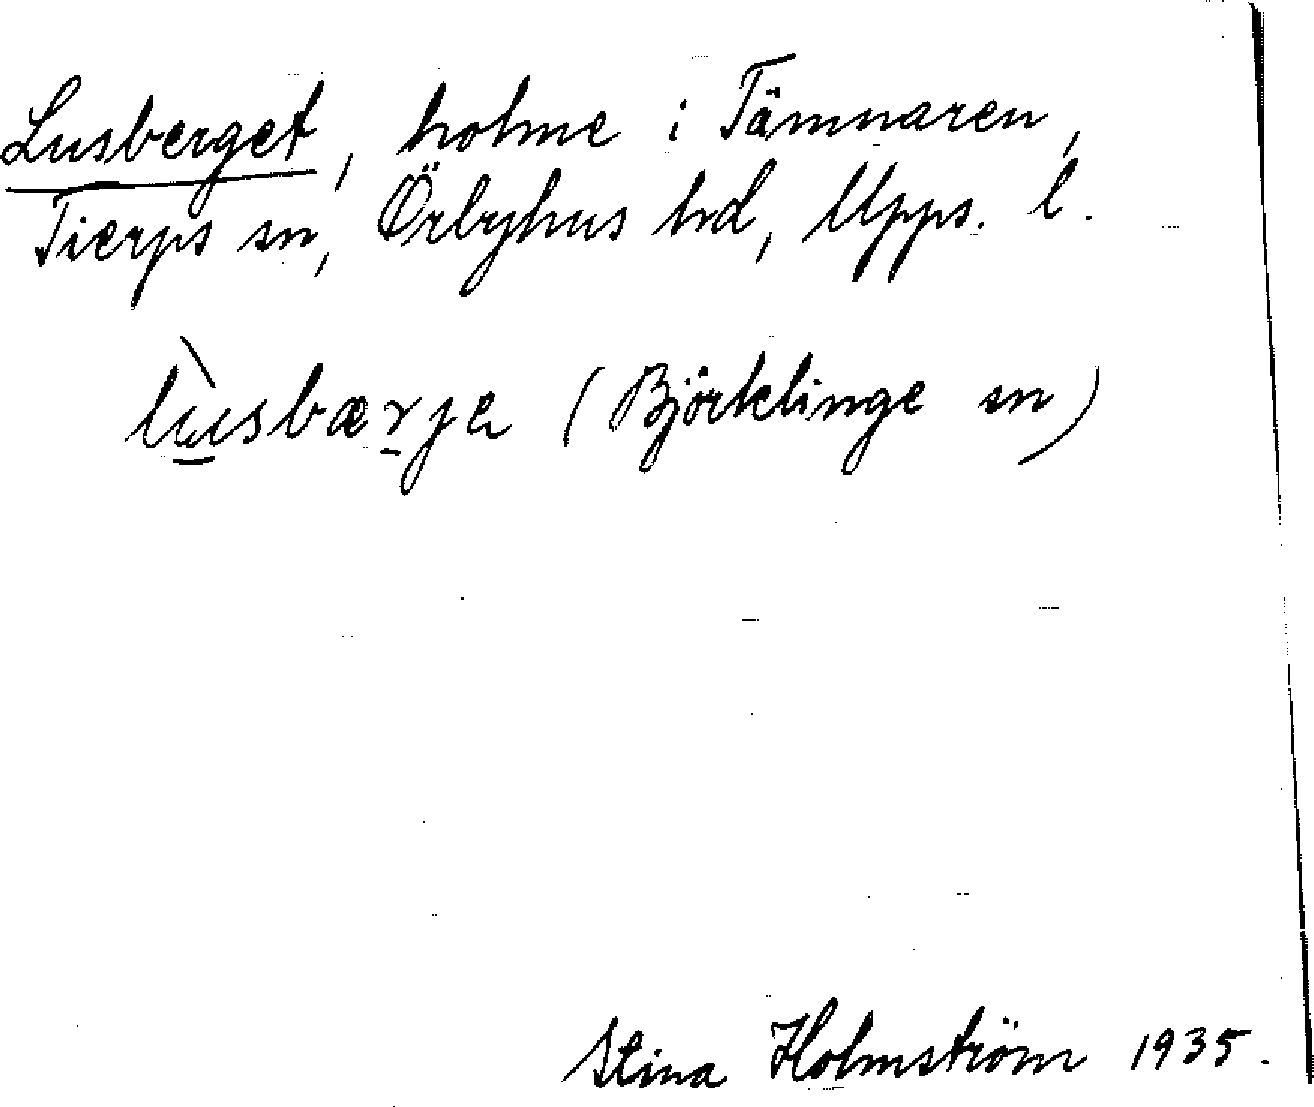 Lusberget, holme i Tämnaren,
Tierps sn, Örbyhus hd, Upps. l.
lùsbærje (Björklinge sn)
Stina Holmström 1935.